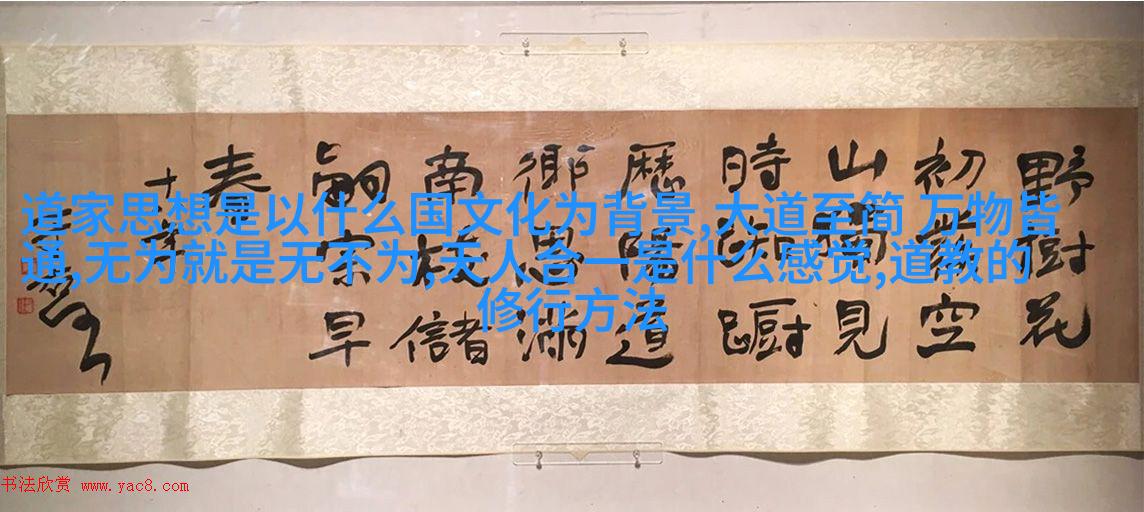 道家思想是以什么国文化为背景,大道至简 万物皆
通,无为就是无不为,天人合一是什么感觉,道教的
修行方法
野樹花
初發空
山獨見
時踟躕
歷陽道
鄉思滿
南枝儲
嗣宗早
春
十
书法欣赏 www.yac8.com